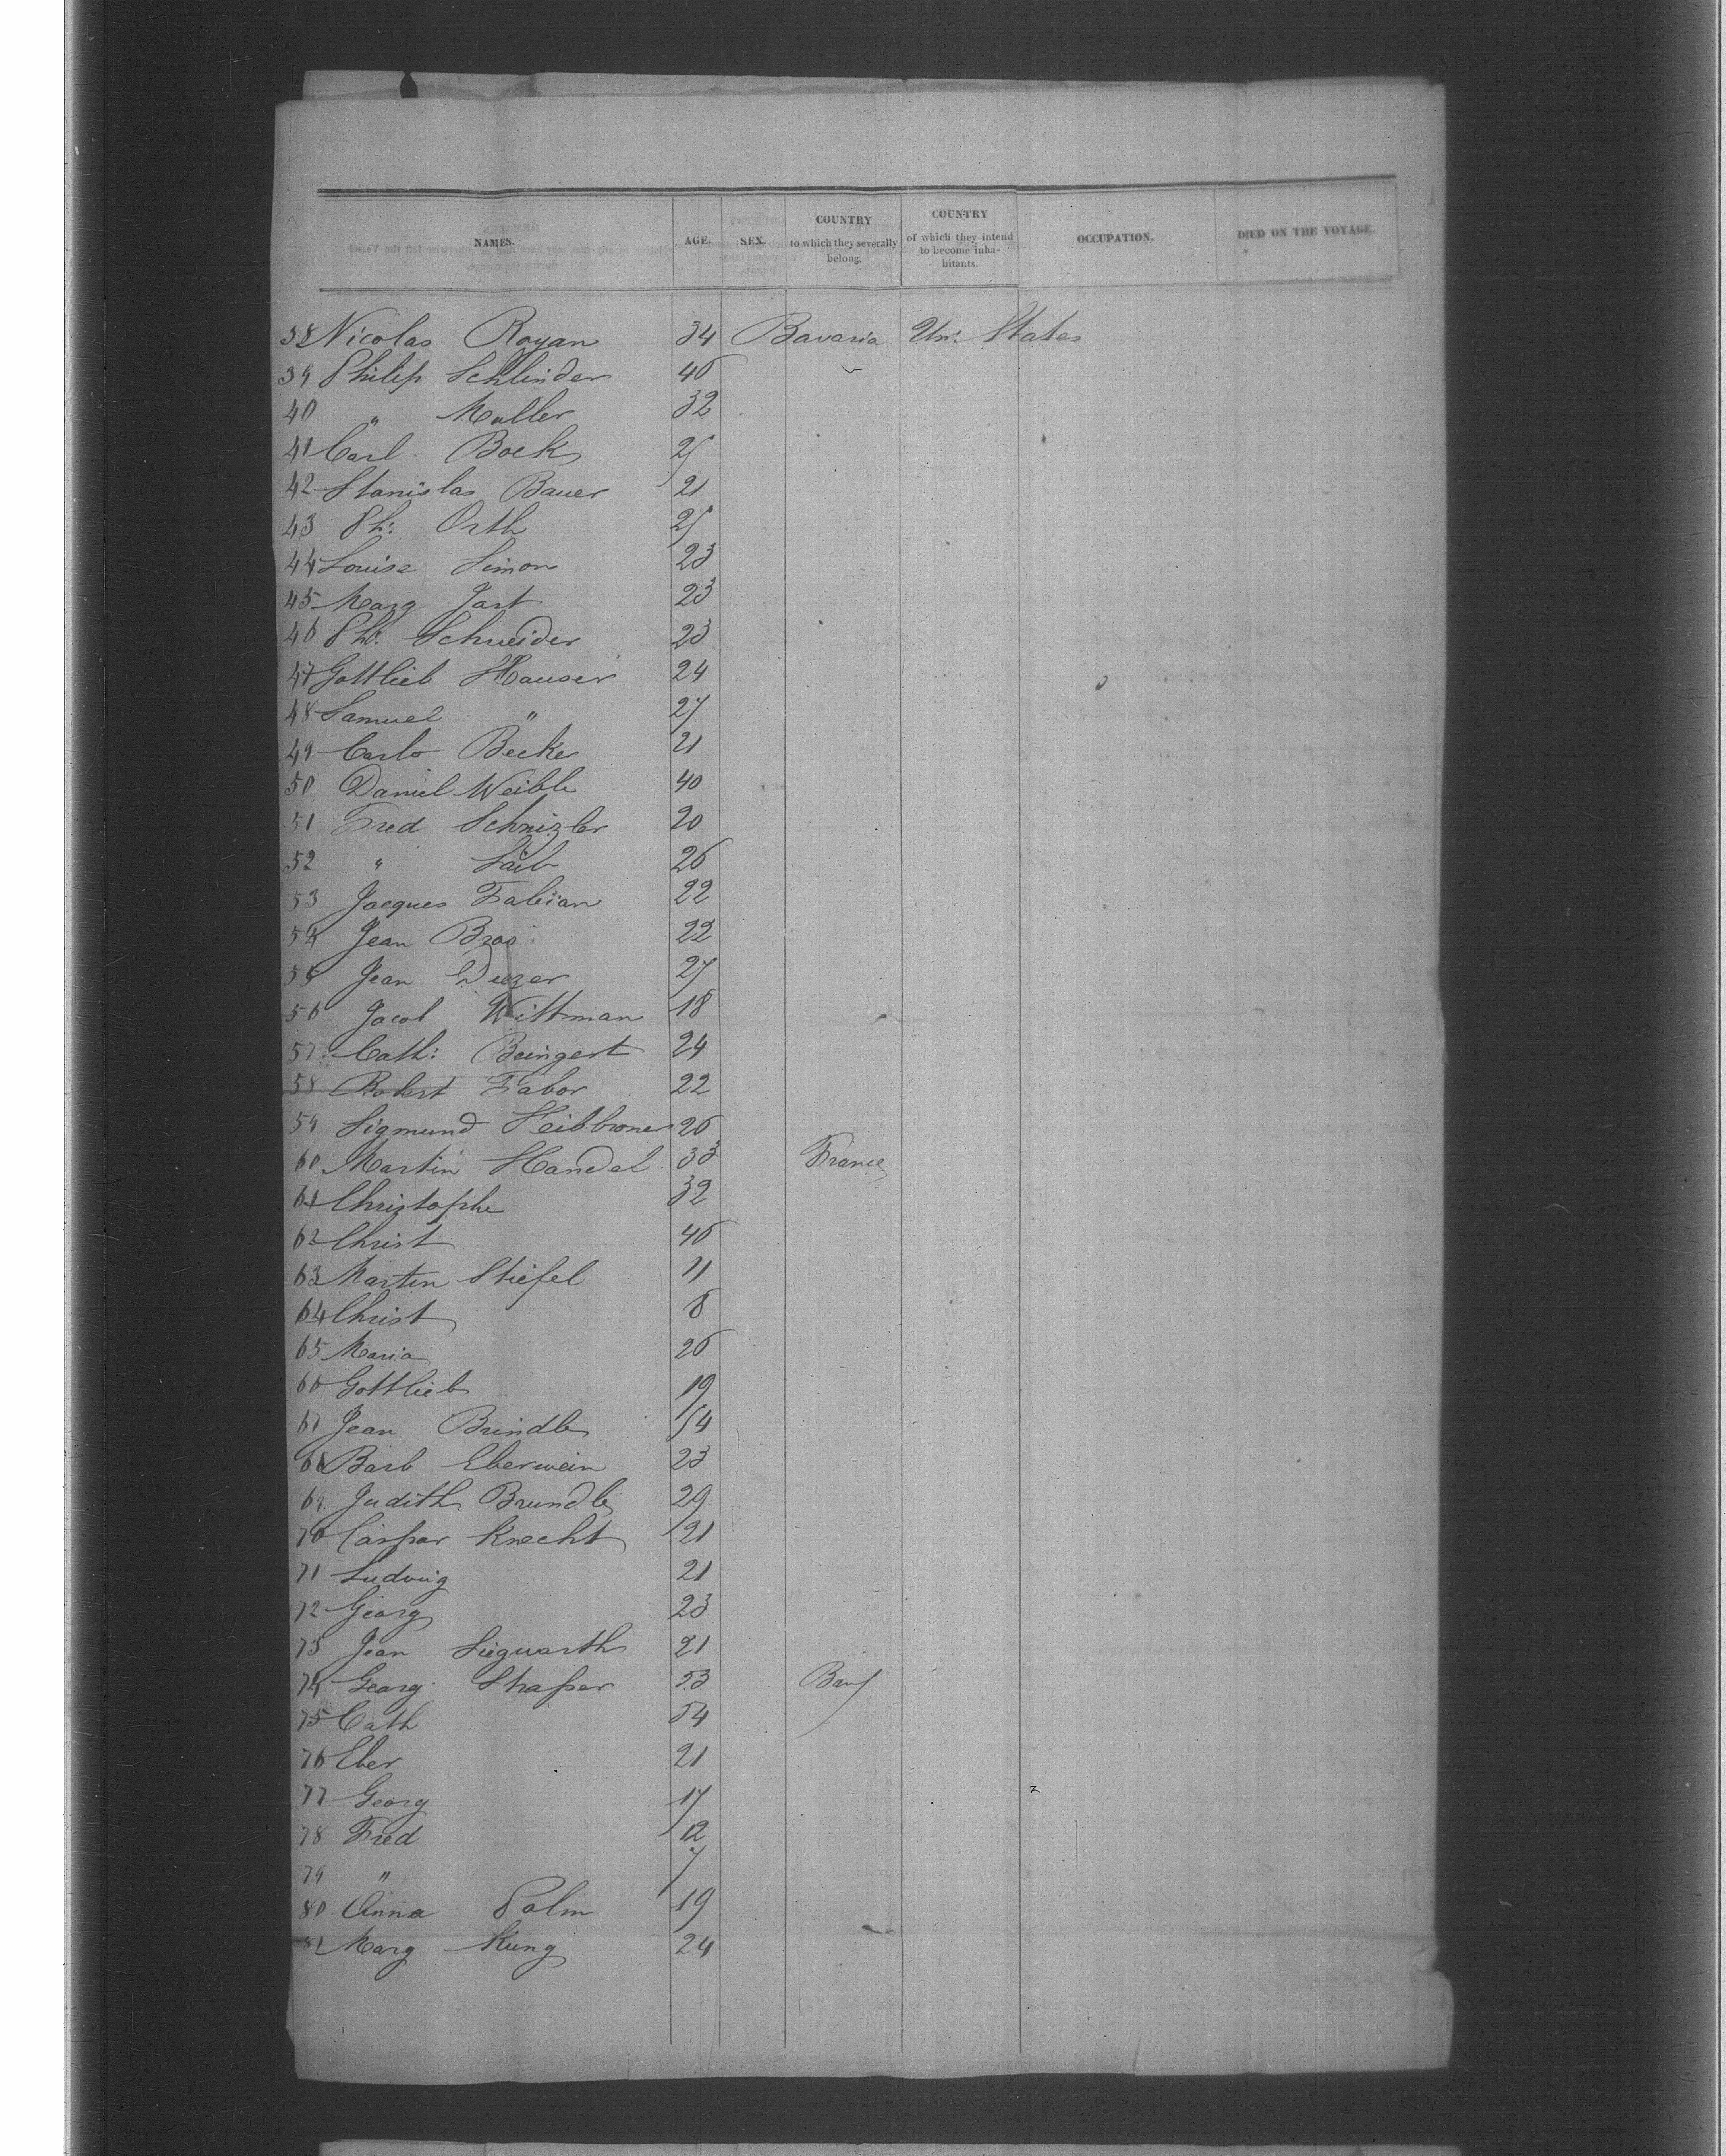 NAMES. AGE. SEX. COUNTRY to which they severally belong. COUNTRY of which they intend to become inhabitants. OCCUPATION. DIED ON THE VOYAGE.
38 Nicolas Royan 34 Bavaria Un: States
39 Philip Schlinder 46
40 " Muller 32
41 Carl Bock 25
42 Stanislas Bauer 21
43 Ph: Orth 25
44 Louise Simon 23
45 Marg Jart 23
46 Ph: Schneider 23
47 Gottlieb Hauser 24
48 Samuel " 27
49 Carlo Becker 21
50 Daniel Weible 40
51 Fred Schnizler 20
52 " Laib 26
53 Jacques Fabian 22
54 Jean Bros 22
55 Jean 27
56 Jacob Wittman 18
57 Cath: Beingert 24
58 Robert Fabor 22
59 Sigmund Heibbroner 26
60 Martin Handel 33 France
61 Christophe 32
62 Christ 46
63 Martin Stiefel 11
64 Christ 8
65 Maria 26
66 Gottlieb 19
67 Jean Brindle 54
68 Barb Eberwein 23
69 Judith Brundle 29
70 Caspar Knecht 21
71 Ludwig 21
72 Georg 23
73 Jean Siegwarth 21
74 Georg Straßer 53
75 Cath 54
76 Eber 21
77 Georg 17
78 Fred 12
79 " 7
80 Anna Palm 19
81 Marg Kung 24